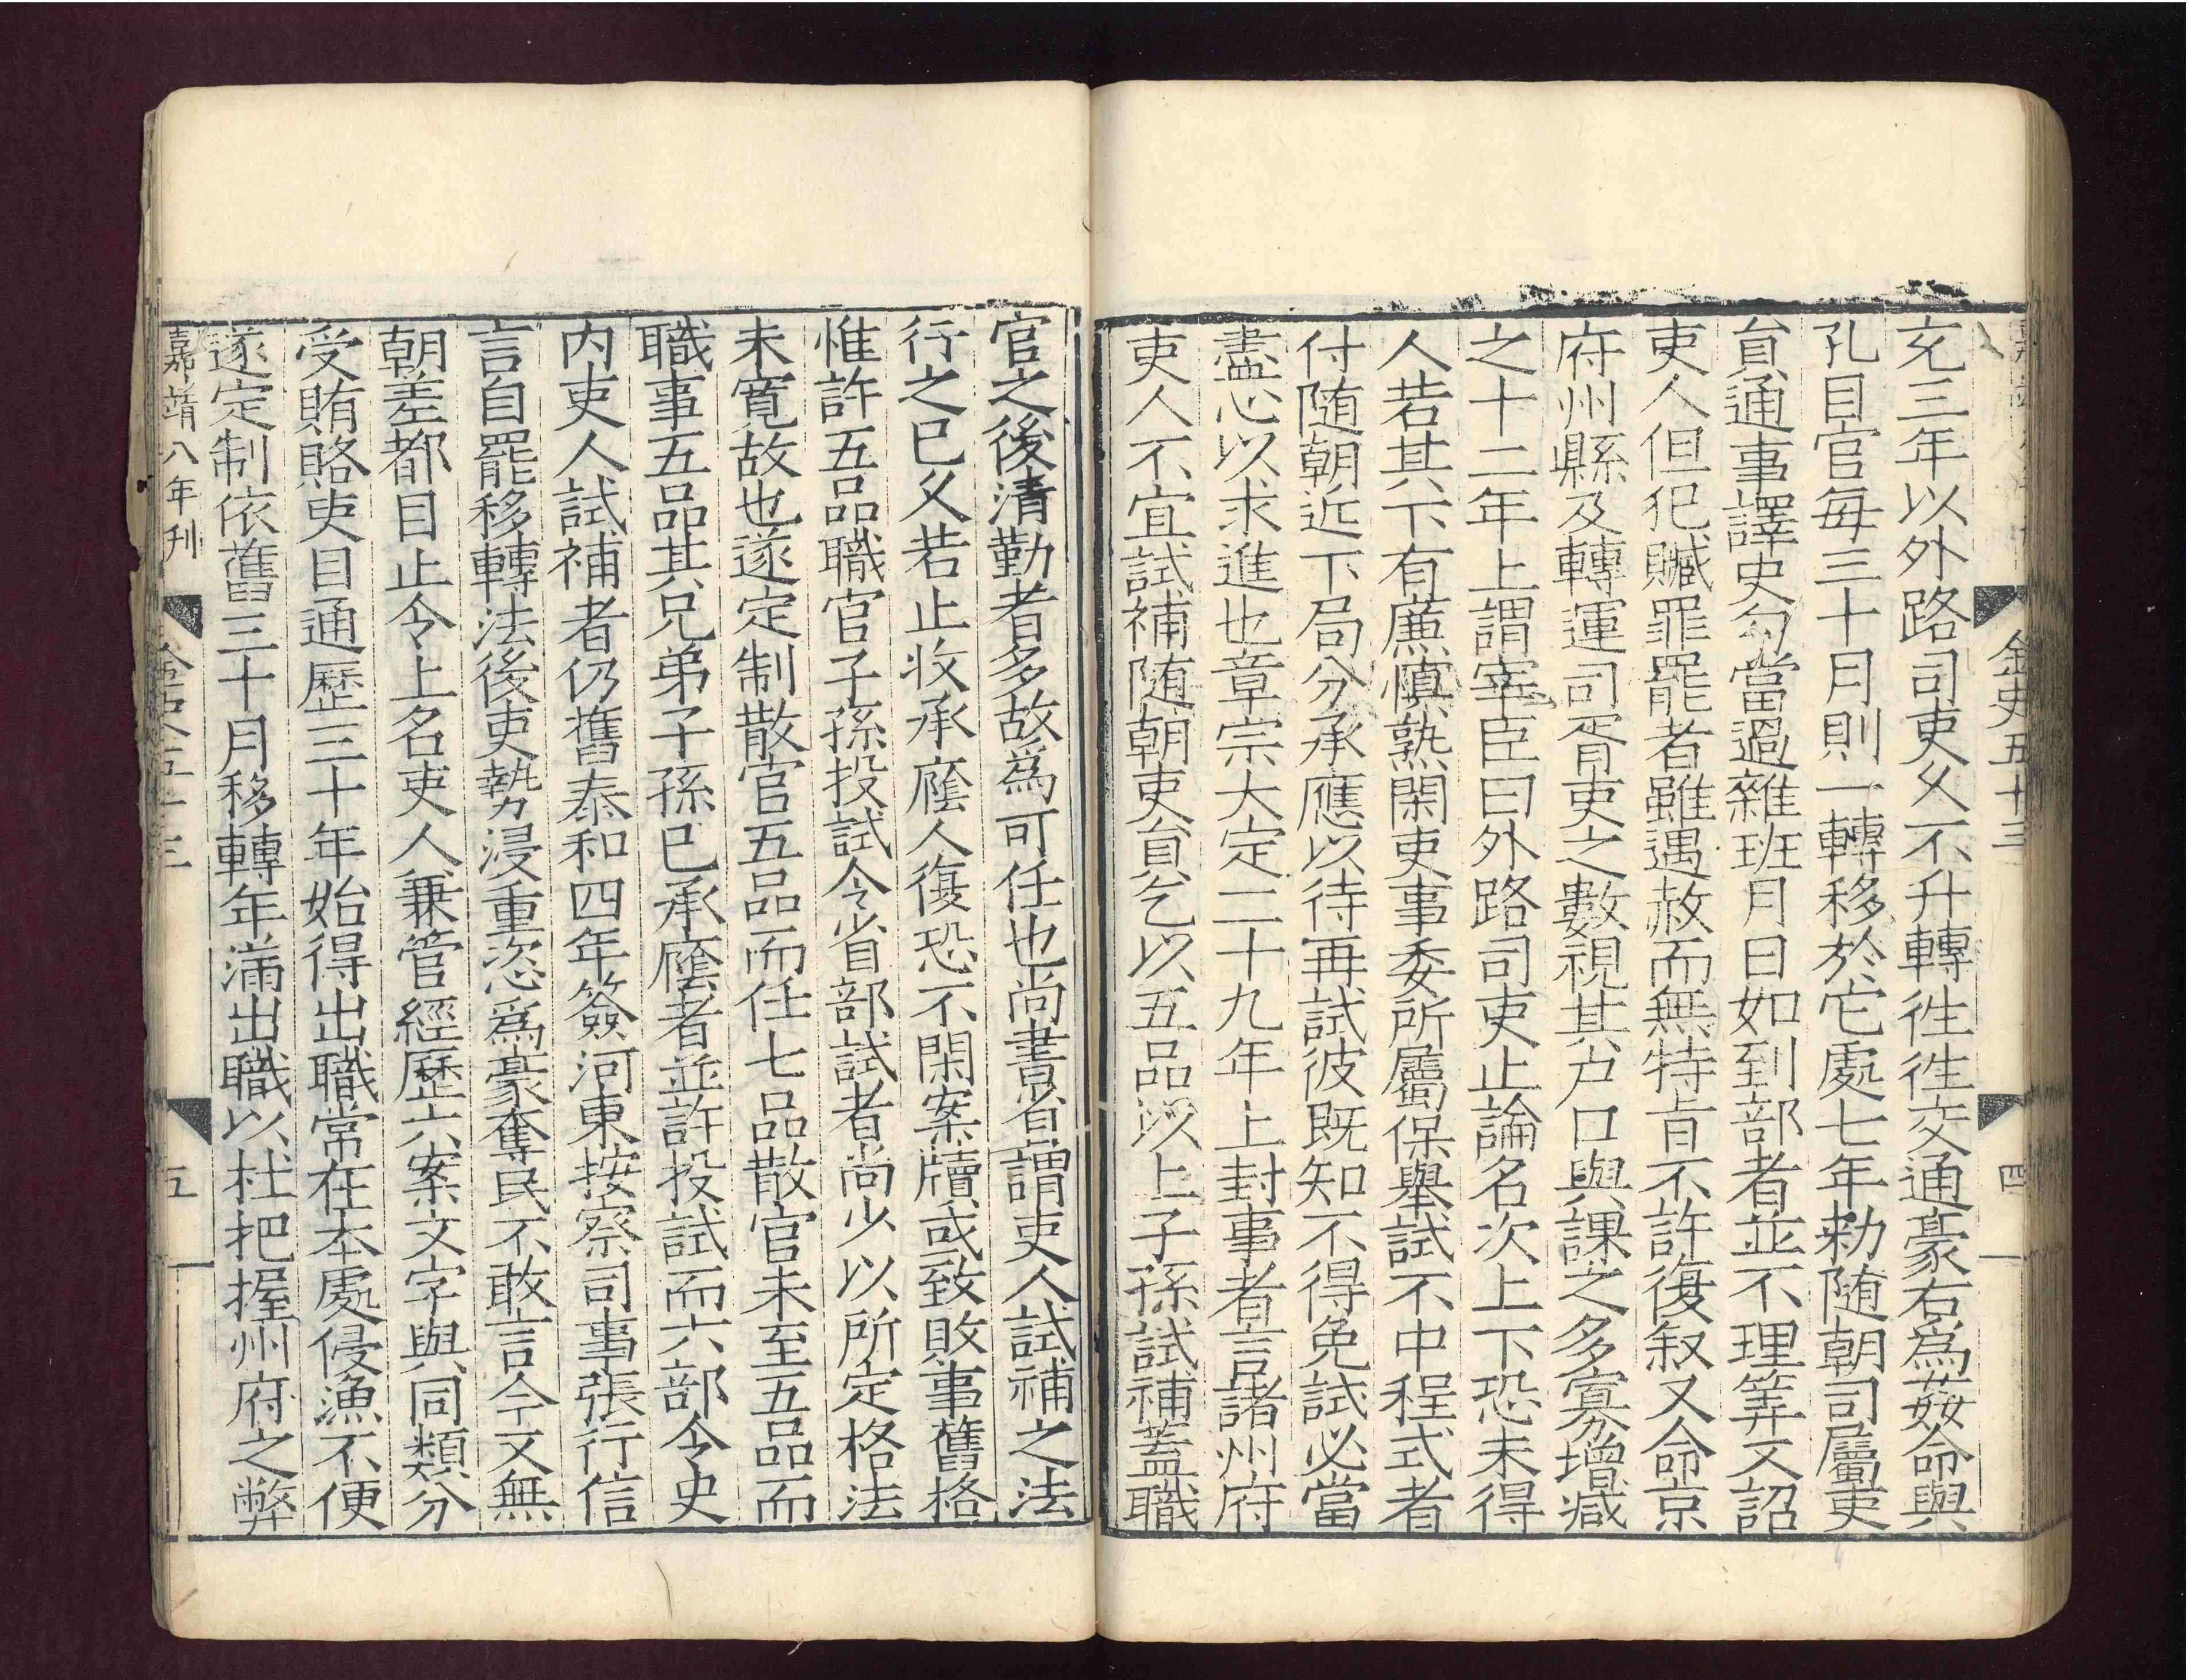 金史五十三
四
充三年以外路司吏久不升轉徃徃交通豪右爲姦命與
孔目官每三十月則一轉移於它處七年勑随朝司屬吏
貟通事譯史勾當過雜班月日如到部者並不理筭又詔
吏人但犯贓罪罷者雖遇赦而無特旨不許復叙又命京
府州縣及轉運司胥吏之數視其户口與課之多寡增減
之十二年上謂宰臣曰外路司吏止論名次上下恐未得
人若其下有廉慎熟閑吏事委所屬保舉試不中程式者
付随朝近下局分承應以待再試彼既知不得免試必當
盡心以求進也章宗大定二十九年上封事者言諸州府
吏人不宜試補随朝吏貟乞以五品以上子孫試補蓋職
官之後清勤者多故爲可任也尚書省謂吏人試補之法
行之已久若止收承廕人復恐不閑案牘或致敗事舊格
惟許五品職官子孫投試令省部試者尚少以所定格法
未寬故也遂定制散官五品而任七品散官未至五品而
職事五品其兄弟子孫已承廕者並許投試而六部令史
内吏人試補者仍舊泰和四年簽河東按察司事張行信
言自罷移轉法後吏勢浸重恣爲豪奪民不敢言今又無
朝差都目止令上名吏人兼管經歷六案文字與同類分
受賄賂吏目通歷三十年始得出職常在本處侵漁不便
遂定制依舊三十月移轉年滿出職以杜把握州府之弊
嘉靖八年刊
金史五十三
五